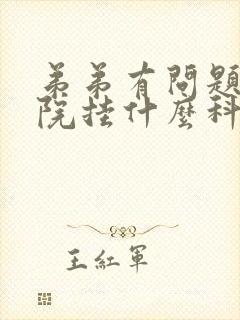 弟弟有問題
院挂什麼科
王紅軍